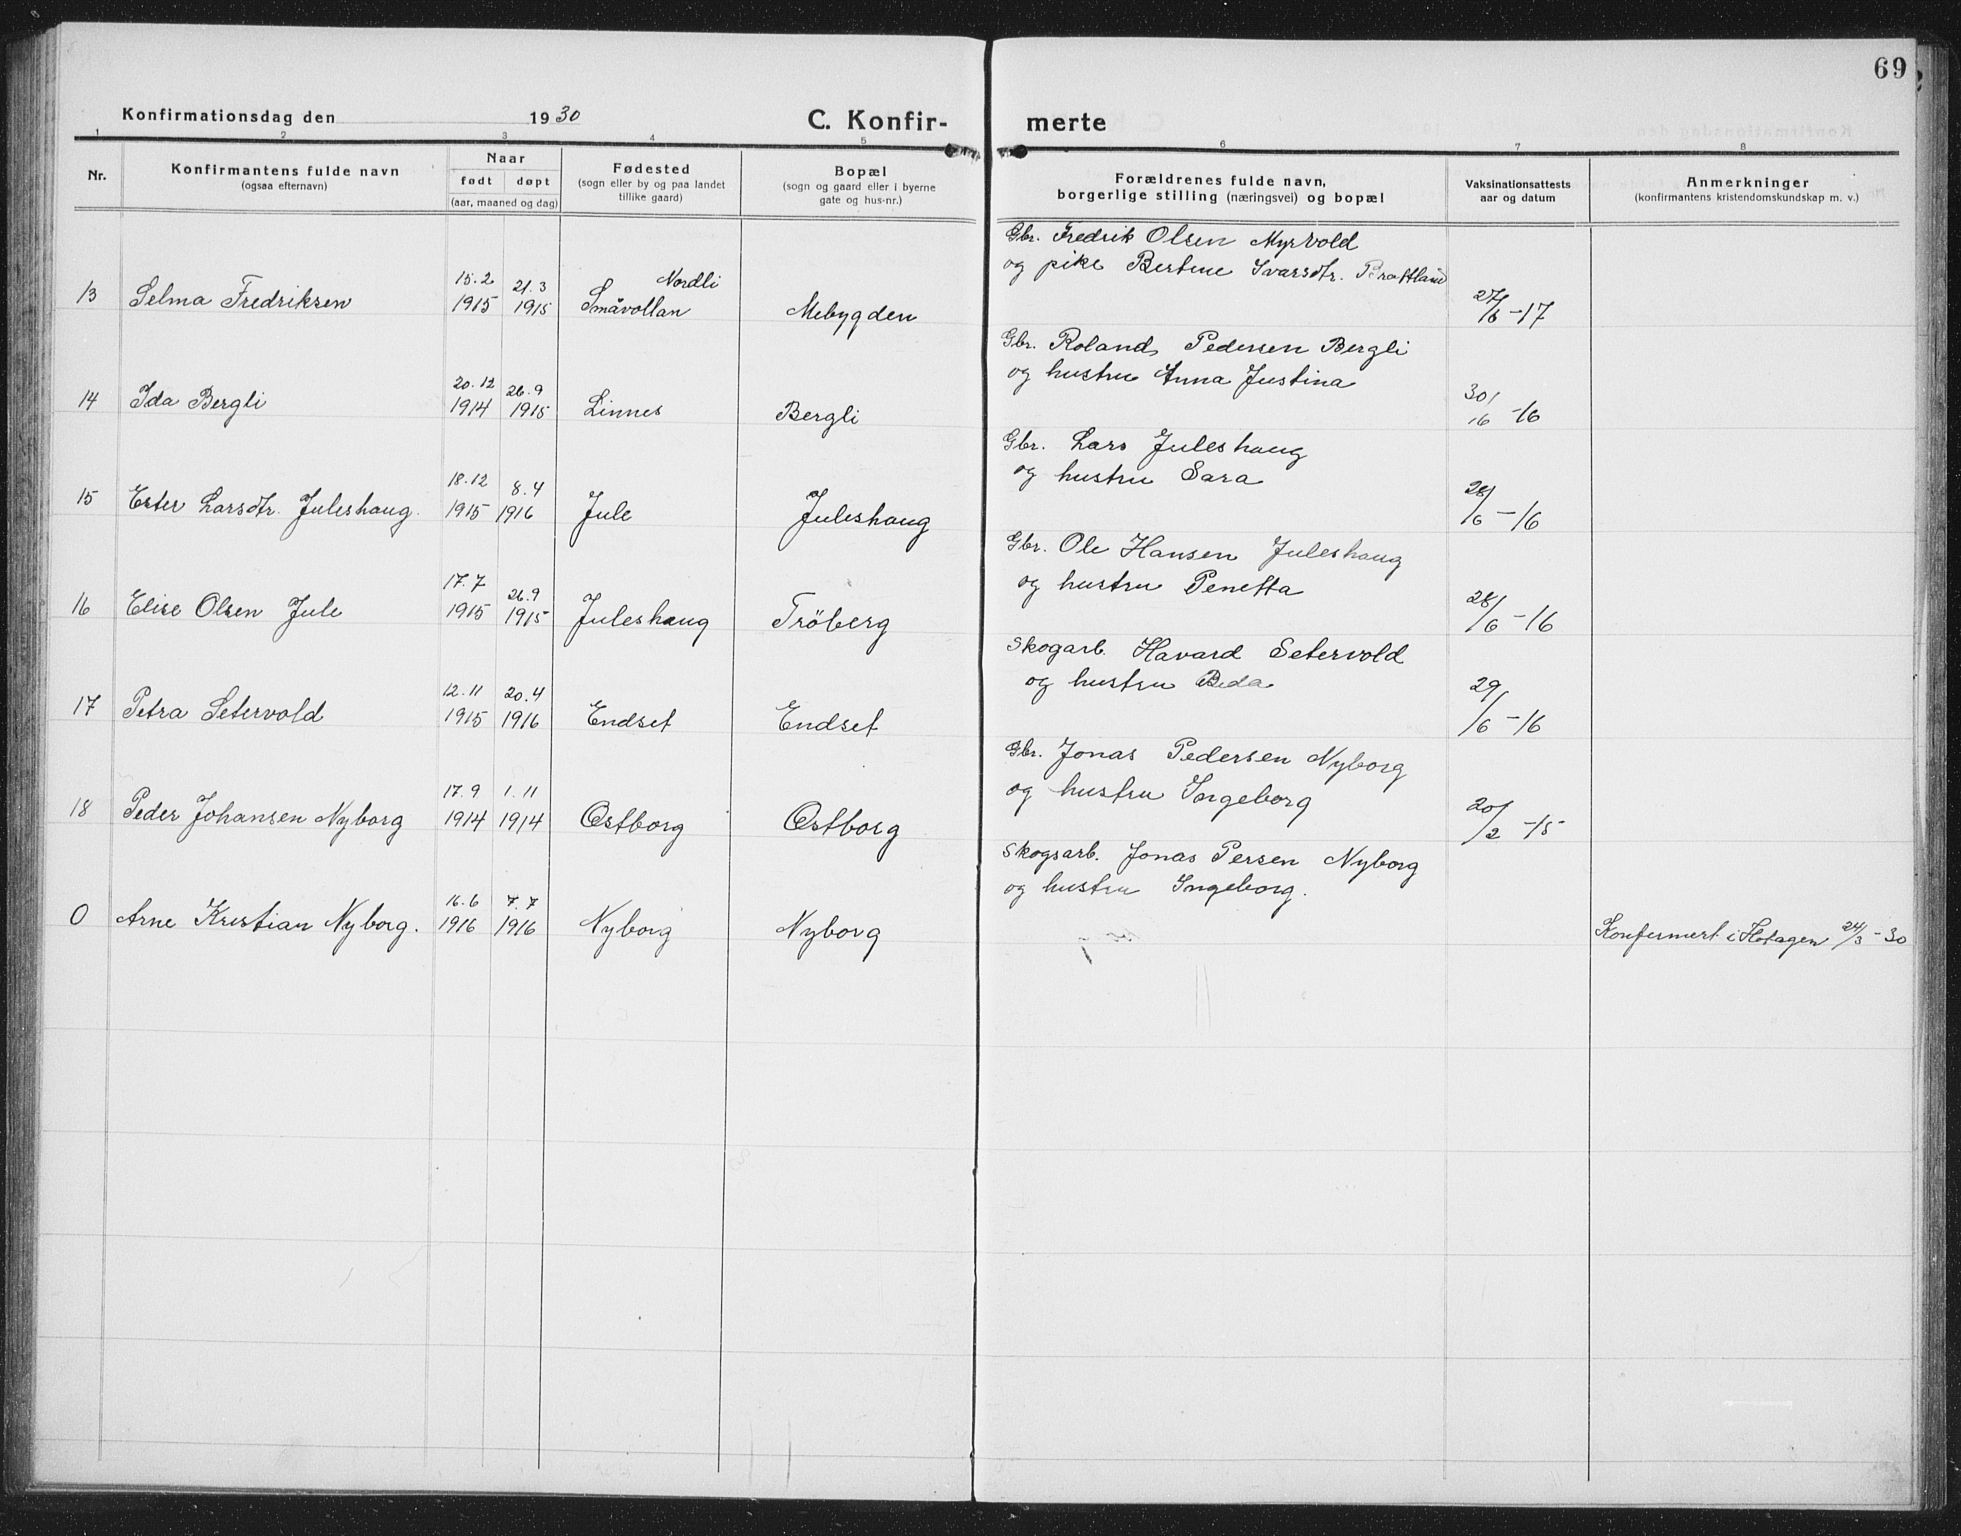 69
Konfirmationsdag den 1930 C. Konfir- merte
1 2 3 4 5 6 7 8
Nr. Konfirmantens fulde navn (ogsaa efternavn) Naar født døpt (aar, maaned og dag) Fødested (sogn eller by og paa landet tillike gaard) Bopæl (sogn og gaard eller i byerne gate og hus-nr.) Forældrenes fulde navn, borgerlige stilling (næringsvei) og bopæl Vaksinationsattests aar og datum Anmerkninger (konfirmantens kristendomskundskap m. v.)
Gbr. Fredrik Olsen Myrvold
og pike Bertine Ivarsdtr. Brattland
15.2 21.3 Nordli
13 Selma Fredriksen 1915 1915 Småvollan Mebygden 27/6 -17
Gbr. Roland Pedersen Bergli
og hustru Anna Justina
20.12 26.9
14 Ida Bergli 1914 1915 Linnes Bergli 30/16 -16
Gbr. Lars Juleshaug
og hustru Sara
18.12 8.4
15 Ester Larsdtr. Juleshaug. 1915 1916 Jule Juleshaug 28/6 -16
Gbr. Ole Hansen Juleshaug
og hustru Penetta
17.7 26.9
16 Elise Olsen Jule 1915 1915 Juleshaug Tröberg 28/6 -16
Skogarb. Havard Setervold
og hustru Beda
12.11 20.4
17 Petra Setervold 1915 1916 Endset Endset 29/6 -16
Gbr. Jonas Pedersen Nyborg
og hustru Ingeborg
17.9 1.11
18 Peder Johansen Nyborg 1914 1914 Østborg Østborg 20/2 -15
Skogsarb. Jonas Persen Nyborg
og hustru Ingeborg.
16.6 7.7
0 Arne Kristian Nyborg. 1916 1916 Nyborg Nyborg Konfermert i Hotagen 24/3 -30